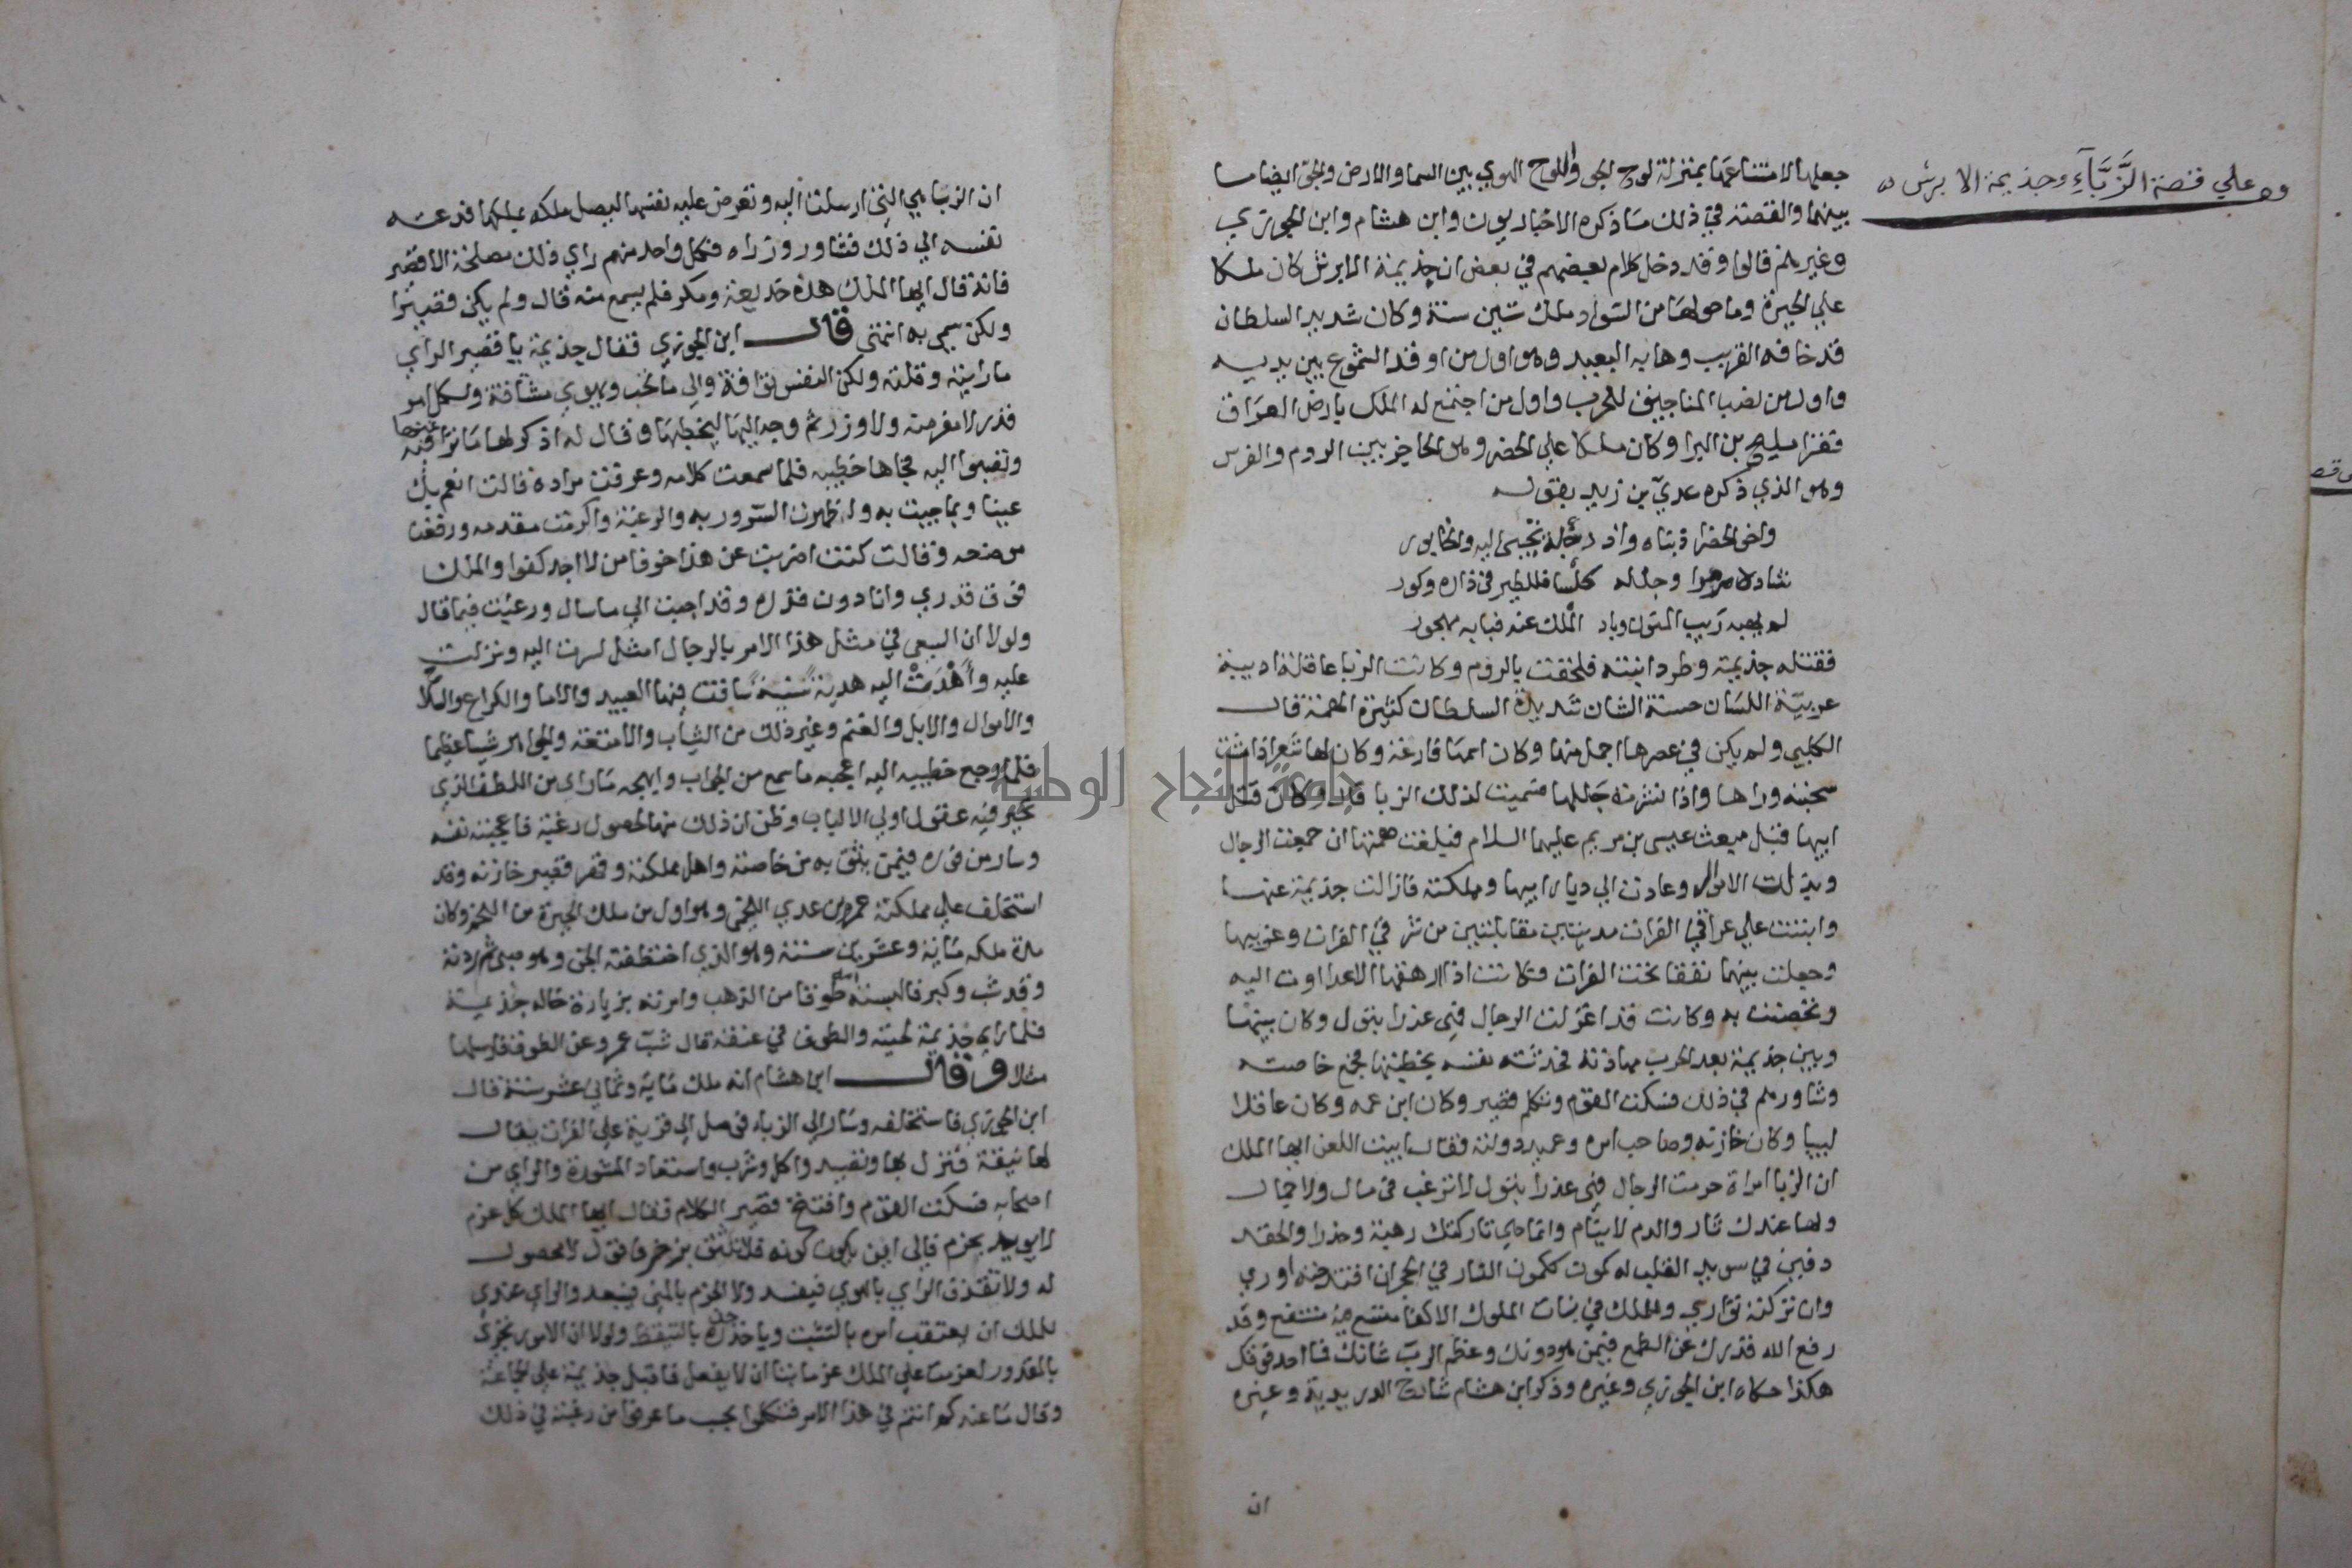 وه علي قصة الزَّبَّآءِ وجذيمة الابرش ه
جعلها لامتناعها بمنزلة لوح الجو واللوح الهوي بين السما والارض والجو ايضا ما
بينهما والقصة في ذلك مَا ذكره الاخباريون وابن هشام وابن الجوزي
وغيرهم قالوا وقد دخل كلام بعضهم في بعض ان جذيمة الابرش كان ملكا
علي الحيرة وما حولها من السَواد ملك ستين سنة وكان شديد السلطان
قد خافه القريب وهابه البعيد وهو اول من اوقد الشموع بين يديه
واول من نصب المناجيق للحرب واول من اجتمع له الملك بارض العرَاق
فغزا مليح بن البرا وكان ملكا علي الحضر وهو الحاجز بين الروم والفرس
وهو الذي ذكره عديّ بن زيد بقوله
واخو الحضر اذ بناه واذ دجلة تجبي اليه والخابور
شاده مرمرا وجلله كلسا فللطير في ذاره وكور
لم يهبه رَيب المنون وباد الملك عنه فبابه مهجور
فقتله جذيمة وطرد ابنته فلحقت بالروم وكانت الزبا عاقلة اديبة
عربيّة اللسَان حسنة الشان شديدة السلطان كثيرة الهمة قال
الكلبي ولم يكن في عصرها اجمل منها وكان اسمهَا فارغة وكان لها شَعر اذا مشت
سحبته وراها واذا نشرته جَللها فسميت لذلك الزبا قال وكان قتل
ابيها قبل مبعث عيسى بن مريم عليهما السلام فبلغت همتها ان جمعت الرجال
وبذلت الاموال وعادت الي ديار ابيها ومملكته فازالت جذيمة عنها
وابتنت علي عراقي الفرات مدينتين متقابلتين من شرقي الفرات وغربيها
وجعلت بينهما نفقا تحت الفرات وكانت اذا ارهقها الاعدا اوت اليه
وتحصنت به وكانت قد اعتزلت الرجال فهي عذرا بتول وكان بينهَا
وبين جذيمة بعد الحرب مهادنة فحدثته نفسه بخطبتها فجمع خاصته
وشاورهم في ذلك فسكت القوم وتكلم قصير وكان ابن عمه وكان عاقلا
لبيبا وكان خازنه وصاحب امره وعميد دولته فقال ابيت اللعن ايها الملك
ان الزبا امراة حرمت الرجال فهي عذرا بتول لا ترغب في مال ولا جمال
ولها عندك ثار والدم لا ينام وانما هي تاركتك رهبة وحذرا والحقد
دفين في سويد القلب له كمون ككمون النار في الحجر ان اقتدحته اوري
وان تركته تواري وللملك في بنات الملوك الاكفا متسع فيه منتفع وقد
رفع الله قدرك عن الطمع فيمن هو دونك وعظم الربّ شانك فما احد فوقك
هكذا حكاه ابن الجوزي وغيره وذكر ابن هشام شارح الدريدية وغيره
ان
ان الزبا هي التي ارسلت اليه وتعرض عليه نفسها ليصل ملكه بملكها فدعته
نفسه الي ذلك فشاور وزراه فكل واحد منهم راي ذلك مصلحة الا قصير
فانه قال ايها الملك هذه خديعة ومكر فلم يسمع منه قال ولم يكن قصيرا
ولكن سمي به انتهي قال ابن الجوزي فقال جذيمة يا قصير الراي
ما رايته وقلته ولكن النفس تواقة والي ما تحب وتهوي مشتاقة ولكل امر
قدر لا مفر منه ولا وزر ثم وجه اليهَا ليخطبهَا وقال له اذكر لها مَا ترغبها فيه
وتصبوا اليه فجاها خطيبه فلما سمعت كلامه وعرفت مراده قالت انعم بك
عينا وبما جيت به ولظهرت السّرور به والرغبة واكرمت مقدمه ورفعت
موضعه وقالت كنت اضربت عن هذا خوفا من لا اجد كفوا والملك
فوق قدري وانا دون قدره وقد اجبت الي ما سال ورغبت فيما قال
ولولا ان السعي في مثل هذا الامر بالرجال امثل لسرت اليه ونزلت
عليه وأَهْدَتْ اليه هدية سنيةً ساقت فيها العبيد والاما والكراع والسلا
والاموال والابل والغنم وغير ذلك من الثياب والامتعة والجواهر شيا عظيما
فلما رجع خطيبه اليه اعجبه ما سمع من الجواب وابهجه مَا راي من اللطف الذي
تحير فيه عقول اولي الالباب وظن ان ذلك منها لحصول رغبة فاعجبته نفسه
وسار من فوره فيمن يثق به من خاصته واهل مملكته وفيهم قصير خازنه وقد
استخلف علي مملكته عمرو بن عدي اللخمي وهو اول من ملك الحيرة من اللخم وكان
مدة ملكه مَاية وعشرين سنة وهو الذي اختطفته الجن وهو صبي ثم ردته
وقد شب وكبر فالبسته امه طوقا من الذهب وامرته بزيارة خاله جذيمة
فلما راي جذيمة لحيته والطوق في عنقه قال شبّ عمرو عن الطوق فارسلها
مثلا وقال ابن هشام انه ملك مَاية وثماني عشر سنة قال
ابن الجوزي فاستخلفه وسَار الي الزباء فوصل الي قرية علي الفرات يقال
لها نيقة فنزل بها وتصيد واكل وشرب واستعاد المشورة والراي من
اصحابه فسكت القوم وافتتح قصير الكلام فقال ايها الملك كل عزم
لا يويد بحزم فالي اين يكون كونه فلا تثق بزخرف قول لا محصول
له ولا تقذف الراي بالهوي فيفسد ولا الحزم بالمني فيبعد والراي عندي
للملك ان يعتقب امره بالتثبت وياخذ حذره بالتيقظ ولولا ان الامور تجري
بالمقدور لعزمت علي الملك عزما بتا ان لا يفعل فاقبل جذيمة علي الجماعة
وقال مَا عندكم انتم في هذا الامر فتكلموا بحسب ما عرفوا من رغبته في ذلك
جامعة النجاح الوطنية